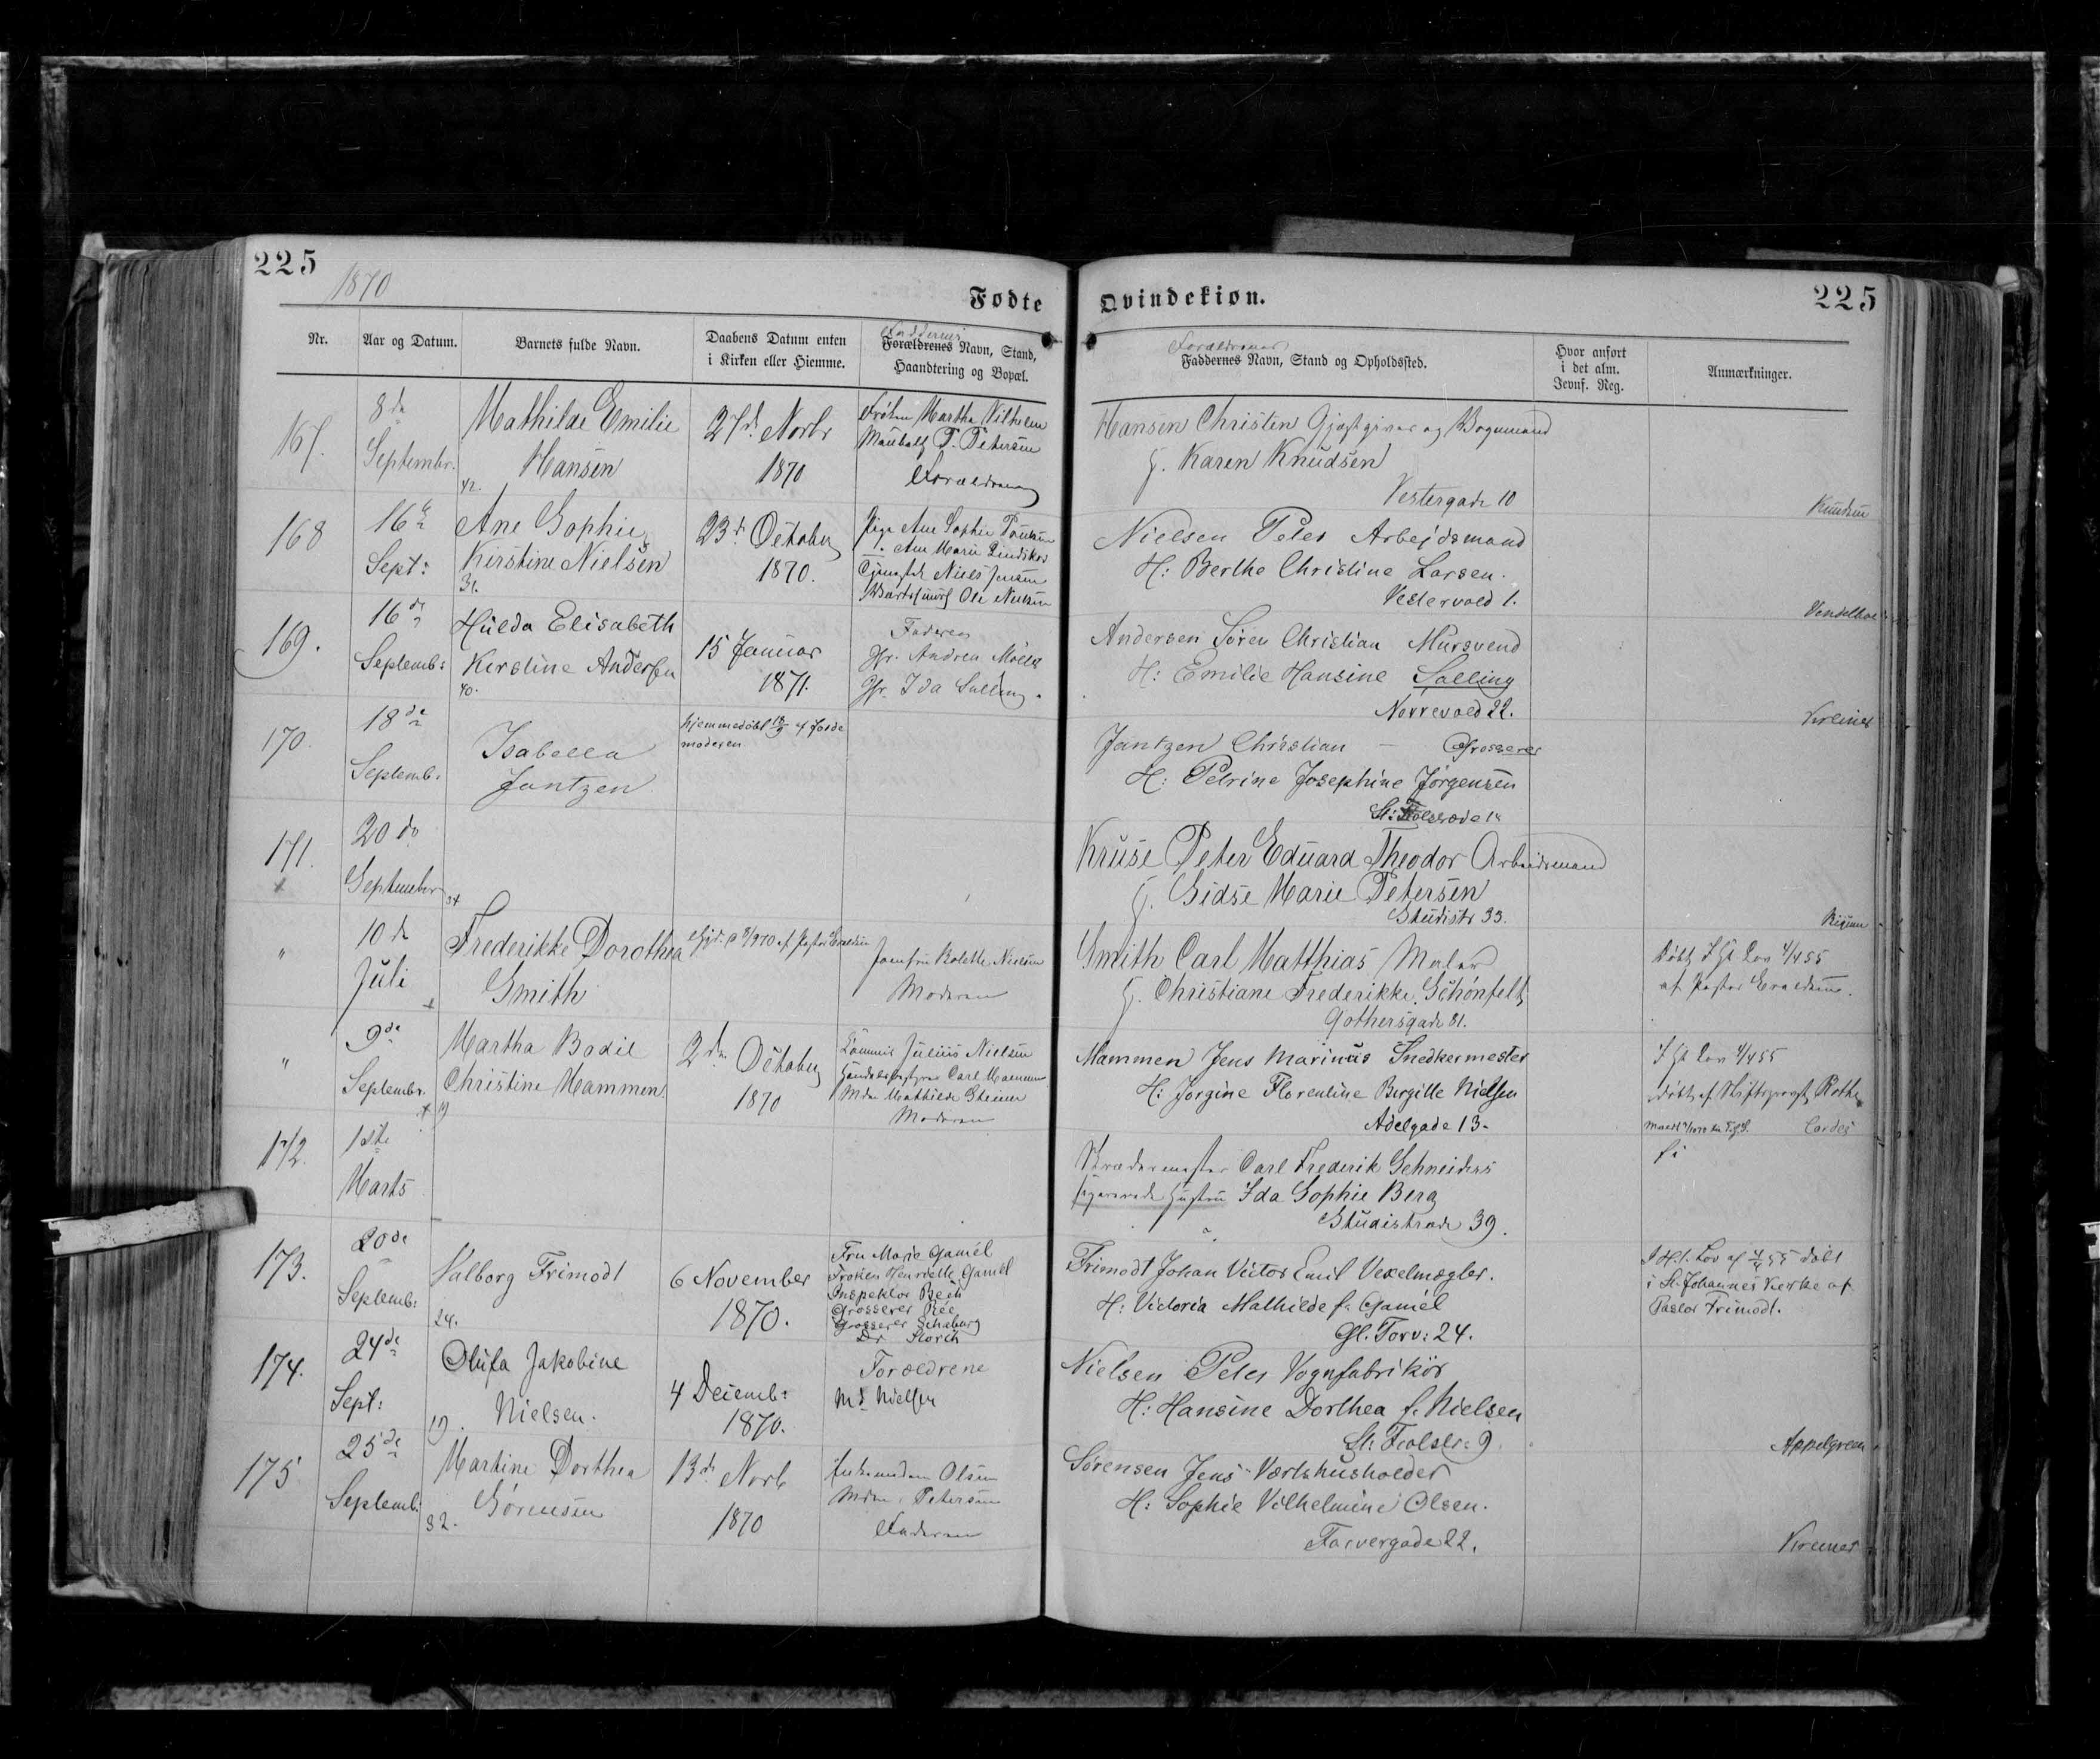 225
1870
Fødte
Qvindekiøn.
225
Nr.
Aar og Datum.
Barnets fulde Navn.
Daabens Datum enten
i Kirken eller Hiemme.
Faddernes
Forældrenes Navn, Stand,
Haandtering og Bopæl.
Forældrenes
Faddernes Navn, Stand og Opholdssted.
Hvor anført
i det alm.
Jevnf. Reg.
Anmærkninger.
167.
8de
Septembr.
Mathilde Emilie
Hansen
42.
27de Novbr
1870
Frøken Martha
P. Petersen
Forældrene
Hansen Christen Gjæstgiver og Vognmand
H. Karen Knudsen
Vestergade 10
Knudsen
168
16de
Sept:
Ane Sophie
Kirstine Nielsen
31.
23de October
1870.
Pige Ane Sophie
Ane Marie
Niels Jensen
Ole Nielsen
Nielsen Peter Arbejdsmand
H: Berthe Christine Larsen.
Vestervold 1.
169.
16de
Septemb:
Hilda Elisabeth
Kirstine Andersen
40.
15 Januar
1871.
Faderen
Jfr. Andrea Møller
Jfr. Ida Salling.
Andersen Søren Christian Mursvend
H: Emilie Hansine Salling
Nørrevold 22.
170.
18de
Septemb:
Isabella
Jantzen
hjemmedøbt 18/9 af Jorde
moderen
Jantzen Christian — Grosserer
H: Petrine Josephine Jørgensen
171.
20de
September
34
Kruse Peter Eduard Theodor Arbeidsmand
H. Sidse Marie Petersen
Studistr 33.
"
10de
Juli
Frederikke Dorothea
Smith
Jomfru Bolette Nielsen
Moderen
Smith Carl Matthias Maler
H. Christiane Frederikke Schönfelt
Gothersgade 81.
Døbt Lov 4/4 55
af Pastor
"
9de
Septembr.
Martha Bodil
Christine Mammen
19
2den October
1870
Julius Nielsen
Carl Mammen
Mathilde
Moderen
Mammen Jens Marinus Snedkermester
H: Jørgine Florentine Birgitte Nielsen
Adelgade 13.
Lov 4/4 55
døbt af Stiftsprovst Rothe
172.
1ste
Marts
Skrædermester Carl Frederik Schneiders
Hustru Ida Sophie Berg
Studistræde 39.
173.
20de
Septemb:
Valborg Frimodt
24.
6 November
1870.
Fru Marie Gamél
Frøken Henriette Gamél
Inspektor Bech
Grosserer Rée
Grosserer
Dr Storch
Frimodt Johan Victor Emil Vexelmægler.
H: Victoria Mathilde f. Gamél
Gl. Torv: 24.
I H. t. Lov af 4/4 55 døbt
i St. Johannes Kirke af
Pastor Frimodt.
174.
24de
Sept:
Olufa Jakobine
Nielsen.
19.
4 Decemb:
1870.
Forældrene
Md Nielsen
Nielsen Peter Vognfabrikør
H: Hansine Dorthea f. Nielsen
St: Fiolstr: 9.
Appelgreen
175
25de
Septemb:
Martine Dorthea
Sørensen
32.
13de Novb
1870
Olsen
Mdm. Petersen
Faderen
Sørensen Jens Værtshusholder
H: Sophie Vilhelmine Olsen.
Farvergade 22.